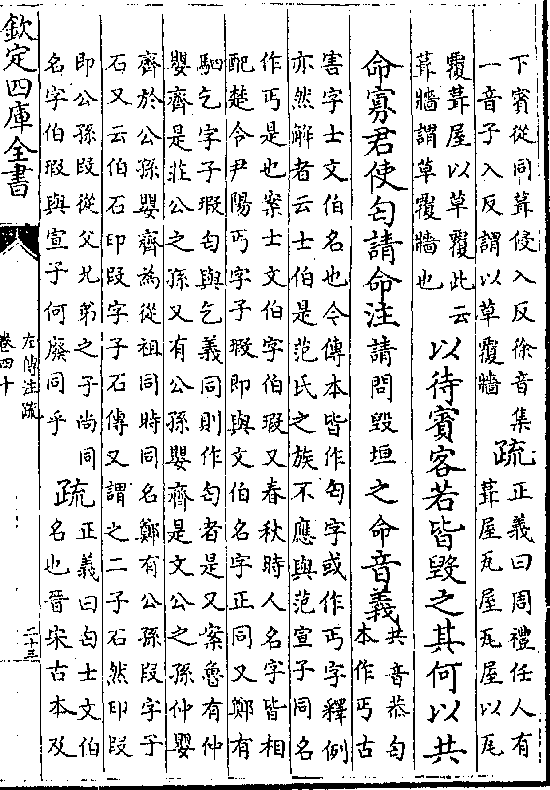 下賓從同葺侵入反徐音集
一音子入反謂以草覆牆
疏
正義曰周禮任人有
葺屋瓦屋瓦屋以瓦
覆葺屋以草覆此云
葺牆謂草覆牆也
以待賓客若皆毀之其何以共
命寡君使匄請命注請問毀垣之命音義
共音恭匄
本作丐古
害字士文伯名也今傳本皆作匄字或作丐字釋例
亦然解者云士伯是范氏之族不應與范宣子同名
作丐是也案士文伯字伯瑕又春秋時人名字皆相
配楚令尹陽丐字子瑕即與文伯名字正同又鄭有
駟乞字子瑕匄與乞義同則作匄者是又案魯有仲
嬰齊是莊公之孫又有公孫嬰齊是文公之孫仲嬰
齊於公孫嬰齊為從祖同時同名鄭有公孫段字子
石又云伯石印段字子石傳又謂之二子石然印段
即公孫段從父兄弟之子尚同
名字伯瑕與宣子何廢同乎
疏
正義曰匄士文伯
名也晉宋古本及
欽定四庫全書
左傳注疏
卷四十
二十三